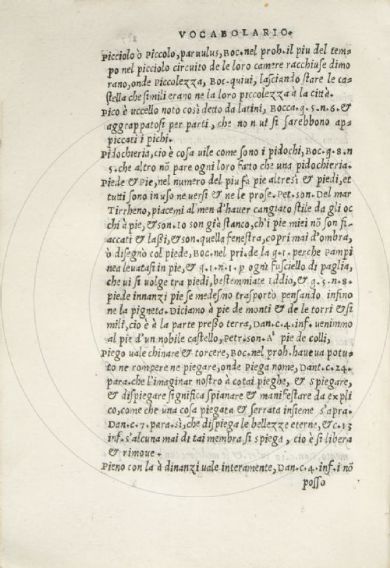 VOCABOLARIO.
Picciolo ò Piccolo, paruulus, Boc. nel proh. il piu del tem=
po nel picciolo circuito de le loro camere racchiuse dimo
rano, onde Piccolezza, Boc. quiui, lasciando stare le ca=
stella che simili erano ne la loro piccolezza à la città.
Pico è uccello noto cosi detto da latini, Bocca. g. 5. n. 6. &
aggrappatosi per parti, che non u si sarebbono ap=
piccati i pichi.
Pidochieria, cio è cosa uile come sono i pidochi, Boc. g. 8. n
5. che altro nõ pare ogni loro fatto che una pidochieria.
Piede & Pie, nel numero del piu fa pie altresi & piedi, et
tutti sono in uso ne uersi & ne le prose. Pet. son. Del mar
Tirrheno, piacemi al men d'hauer cangiato stile da gli oc
chi à pie, & son. Io son gia stanco, ch'i pie miei nõ son fi=
accati & lassi, & son. quella fenestra, co pri mai d'ombra,
ò disegnò col piede, Boc. nel pri. de la g. 1. perche Pampi
nea leuatasi in pie, & g. 1. n. 1. p ogni fusciello di paglia,
che ui si uolge tra piedi, bestemmiate Iddio, & g. 5. n. 8.
piede innanzi pie se medesmo trasportò pensando infino
ne la pigneta. Diciamo à pie de monti & de le torri & si
mili, cio è à la parte presso terra, Dan. c. 4. inf. uenimmo
al pie d'un nobile castello, Pet. son. A' pie de colli,
Piego uale chinare & torcere, Boc. nel proh. haueua potu=
to ne rompere ne piegare, onde Piega nome, Dant. c. 24.
para. che l'imaginar nostro à cotai pieghe, & Spiegare,
& dispiegare significa spianare & manifestare da expli
co, come che una cosa piegata & serrata insieme s'apra.
Dan. c. 7. para. sì, che dispiega le bellezze eterne, & c. 13
inf. s'alcuna mai di tai membra si spiega, cio è si libera
& rimoue.
Pieno con la è dinanzi uale interamente, Dan. c. 4. inf. i nõ
posso